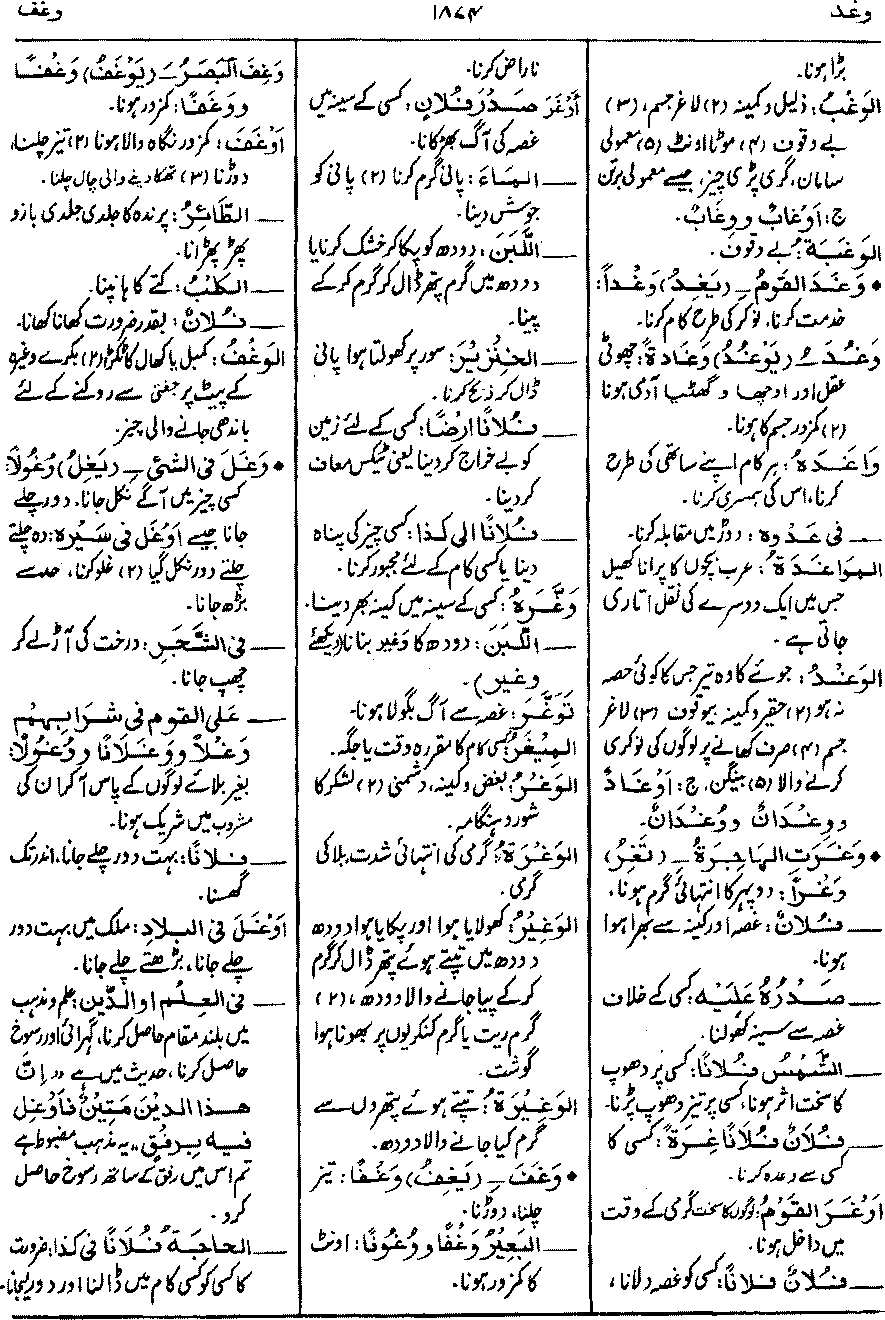 وغد ۱۸۷۴ وغف
بڑا ہونا۔
الوَغْبُ: ذلیل و کمینہ (۲) لاغر جسم، (۳)
بے وقوف (۴) موٹا اونٹ (۵) معمولی
سامان، گری پڑی چیز، جیسے معمولی برتن
ج: اَوْغَابٌ و وِغَابٌ۔
الوَغْبَة: بے وقوف۔
• وَغَدَ القَومُ ـِ (يَغِدُ) وَغْداً:
خدمت کرنا، نوکر کی طرح کام کرنا۔
وَغُدَ ـُ (يَوْغُدُ) وَغَادَةً: چھوٹی
عقل اور اوچھا و گھٹیا آدمی ہونا
(۲) کمزور جسم کا ہونا۔
وَاغَدَهٗ: ہر کام اپنے ساتھی کی طرح
کرنا، اس کی ہمسری کرنا۔
ـــ فی عَدْوِهٖ: دوڑ میں مقابلہ کرنا۔
المُوَاغَدَةُ: عرب بچوں کا پرانا کھیل
جس میں ایک دوسرے کی نقل اتاری
جاتی ہے۔
الوَغْدُ: جوئے کا وہ تیر جس کا کوئی حصہ
نہ ہو (۲) حقیر و کمینہ بیوقوف (۳) لاغر
جسم (۴) صرف کھانے پر لوگوں کی نوکری
کرنے والا (۵) بینگن، ج: اَوْغَادٌ
و وِغْدَانٌ و وُغْدَانٌ۔
• وَغَرَتِ الهَاجِرَةُ ـِ (تَغِرُ)
وَغْراً: دوپہر کا انتہائی گرم ہونا۔
ـــ فُلَانٌ: غصہ اور کینہ سے بھرا ہوا
ہونا۔
ـــ صَدْرُهٗ عَلَيْهِ: کسی کے خلاف
غصہ سے سینہ کھولنا۔
ـــ الشَّمْسُ فُلَانًا: کسی پر دھوپ
کا سخت اثر ہونا، کسی پر تیز دھوپ پڑنا۔
ـــ فُلَانٌ فُلَانًا غِرَةً: کسی کا
کسی سے وعدہ کرنا۔
اَوْغَرَ القَوْمُ: لوگوں کا سخت گرمی کے وقت
میں داخل ہونا۔
ـــ فُلَانٌ فلانًا: کسی کو غصہ دلانا،
ناراض کرنا۔
اَوْغَرَ صَدْرَ فُلَانٍ: کسی کے سینہ میں
غصہ کی آگ بھڑکانا۔
ـــ المَاءَ: پانی گرم کرنا (۲) پانی کو
جوش دینا۔
ـــ اللَّبَنَ: دودھ کو پکا کر خشک کرنا یا
دودھ میں گرم پتھر ڈال کر گرم کر کے
پینا۔
ـــ الخِنْزِيْرَ: سور پر کھولتا ہوا پانی
ڈال کر ذبح کرنا۔
ـــ فُلَانًا ارْضًا: کسی کے لئے زمین
کو بے خراج کر دینا یعنی ٹیکس معاف
کر دینا۔
ـــ فُلَانًا الی کَذَا: کسی چیز کی پناہ
دینا یا کسی کام کے لئے مجبور کرنا۔
وَغَّرَهٗ: کسی کے سینہ میں کینہ بھر دینا۔
ـــ اللَّبَنَ: دودھ کا وَغیر بنانا (دیکھئے
وغیر)۔
تَوَغَّرَ: غصہ سے آگ بگولا ہونا۔
المِيْغَرُ: کسی کام کا مقررہ وقت یا جگہ۔
الوَغْرُ: بغض و کینہ، دشمنی (۲) لشکر کا
شور و ہنگامہ۔
الوَغْرَةُ: گرمی کی انتہائی شدت، بلا کی
گرمی۔
الوَغِيْرُ: کھولایا ہوا اور پکایا ہوا دودھ
دودھ میں تپتے ہوئے پتھر ڈال کر گرم
کر کے پیا جانے والا دودھ، (۲)
گرم ریت یا گرم کنکریوں پر بھونا ہوا
گوشت۔
الوَغِيْرَةُ: تپتے ہوئے پتھروں سے
گرم کیا جانے والا دودھ۔
• وَغَفَ ـِ (يَغِفُ) وَغْفًا: تیز
چلنا، دوڑنا۔
ـــ البَعِيْرُ وَغْفًا و وُغُوفًا: اونٹ
کا کمزور ہونا۔
وَغِفَ الْبَصَرُ ـَ (يَوْغَفُ) وَغْفًا
و وَغَفًا: کمزور ہونا۔
اَوْغَفَ: کمزور نگاہ والا ہونا (۲) تیز چلنا،
دوڑنا (۳) تھکا دینے والی چال چلنا۔
ـــ الطَّائِرُ: پرندہ کا جلدی جلدی بازو
پھڑ پھڑانا۔
ـــ الكلبُ: کتے کا ہانپنا۔
ـــ فُلَانٌ: بقدر ضرورت کھانا کھانا۔
الوَغْفُ: کمبل یا کھال کا ٹکڑا (۲) بکرے وغیرہ
کے پیٹ پر جفتی سے روکنے کے لئے
باندھی جانے والی چیز۔
• وَغَلَ فی الشئ ـِ (يَغِلُ) وُغُولًا:
کسی چیز میں آگے نکل جانا۔ دور چلے
جانا جیسے اَوْغَلَ فی سَيْرِهٖ: وہ چلتے
چلتے دور نکل گیا (۲) غلو کرنا، حد سے
بڑھ جانا۔
ـــ فی الشَّجَرِ: درخت کی آڑ لے کر
چھپ جانا۔
ـــ عَلَی القَومِ فی شَرَابِهِمْ
وَغْلًا و وَغَلَانًا و وُغُولًا:
بغیر بلائے لوگوں کے پاس آ کر ان کی
مشروب میں شریک ہونا۔
ـــ فلانًا: بہت دور چلے جانا، اندر تک
گھسنا۔
اَوْغَلَ فی البِلَادِ: ملک میں بہت دور
چلے جانا، بڑھتے چلے جانا۔
ـــ فی العِلْمِ او الدِّينِ: علم و مذہب
میں بلند مقام حاصل کرنا، گہرائی اور رسوخ
حاصل کرنا، حدیث میں ہے "اِنَّ
هٰذا الدِیْنَ مَتِيْنٌ فَاَوْغِل
فیه بِرِفْقٍ" یہ مذہب مضبوط ہے
تم اس میں رفق کے ساتھ رسوخ حاصل
کرو۔
ـــ الحاجَةُ فُلَانًا فی کذا: ضرورت
کا کسی کو کسی کام میں ڈالنا اور دور لیجانا۔